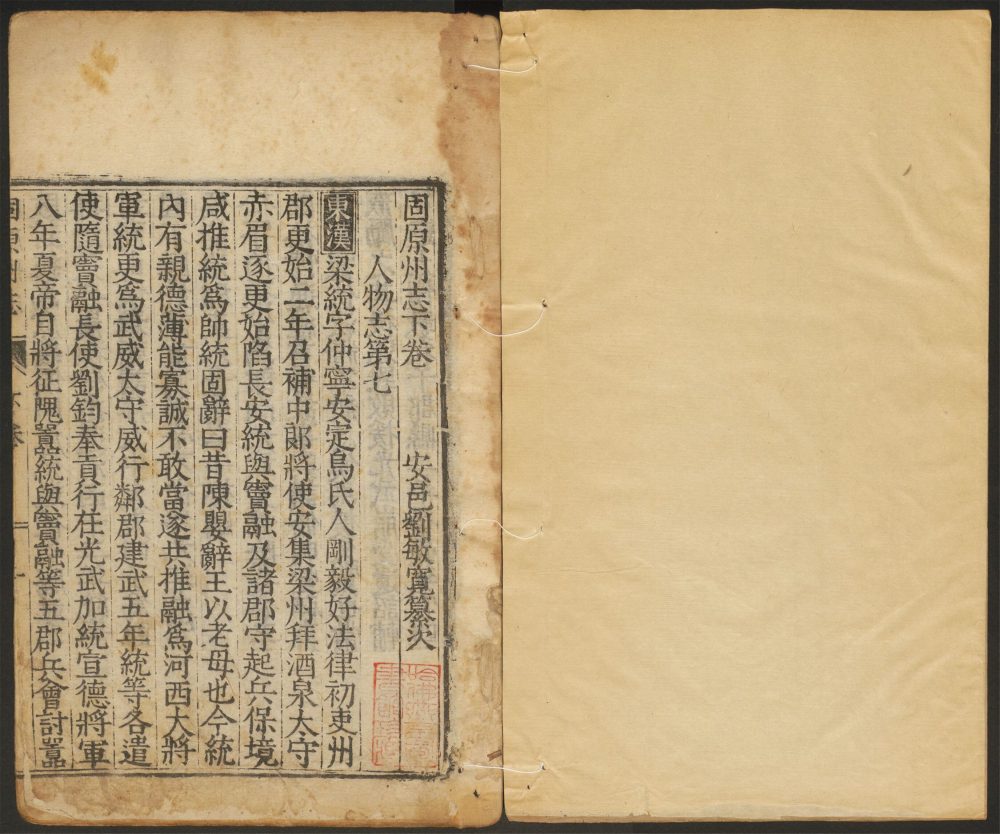 固原州志下卷　安邑劉敏寬纂次
人物志第七
東漢梁統字仲寧安定烏氏人剛毅好法律初吏州
郡更始二年召補中郎將使安集梁州拜酒泉太守
赤眉逐更始陷長安統與竇融及諸郡守起兵保境
咸推統爲帥統固辭曰昔陳嬰辭王以老母也今統
內有親德薄能寡誠不敢當遂共推融爲河西大將
軍統更爲武威太守威行鄰郡建武五年統等各遣
使隨竇融長使劉鈞奉貢行在光武加統宣德將軍
八年夏帝自將征隗囂統與竇融等五郡兵會討囂
固原州志 下卷 一